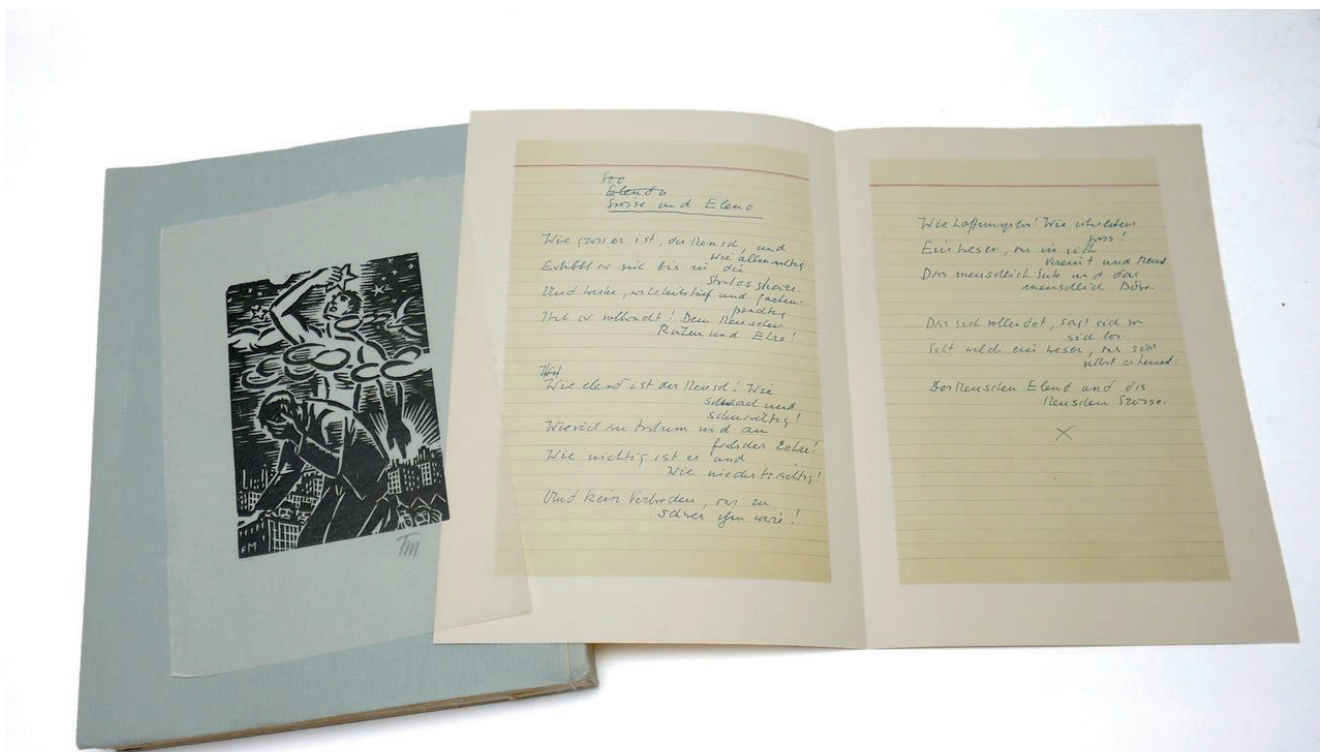 FM
FM
Elend u
Grosse und Elend
Wie gross er ist, der Mensch, und
wie allmächtig
Erhebt er sich bis in die
Stratosphäre.
Und Werke, und
Hat er vollbracht! Dem Menschen
Ruhm und Ehre!
Wie elend ist der Mensch! Wie
schwach und
Wieviel an Irrtum und an
falscher Lehre!
Wie nichtig ist er und
Wie niederträchtig!
Und kein Verbrechen, das zu
schwer ihm wäre!
Wie hoffnungslos! Wie
gross!
Ein Wesen, das in sich
vereint und trennt
Das menschlich Gute und das
menschlich Böse.
Das sich vollendet, sagt sich von
sich los.
Seht welch ein Wesen, das sich
selbst erkennt:
Des Menschen Elend und des
Menschen Grösse.